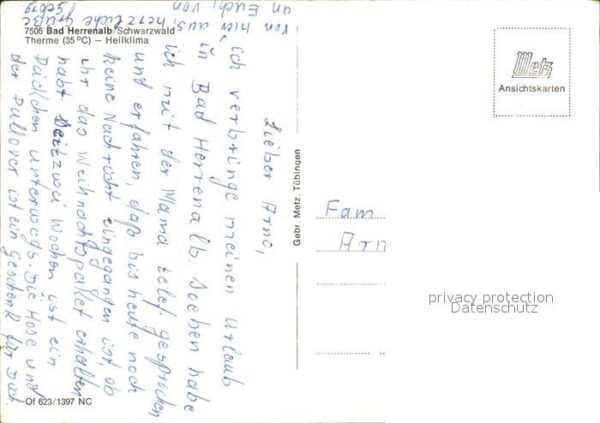 7506 Bad Herrenalb/Schwarzwald
Therme (35 °C) – Heilklima
Lieber Arno,
ich verbringe meinen Urlaub
in Bad Herrenalb. Soeben habe
ich mit der Mama telef. gesprochen
und erfahren, daß bis heute noch
keine Nachricht eingegangen ist, ob
ihr das Weihnachtspaket erhalten
habt. Seit zwei Wochen ist ein
Päckchen unterwegs. Die Hose und
der Pullover ist ein Geschenk für Dich.
Von hier aus, herzliche Grüße
an Euch, von
Gebr. Metz, Tübingen
Metz
Ansichtskarten
Fam
Arn
privacy protection
Datenschutz
Of 623/1397 NC